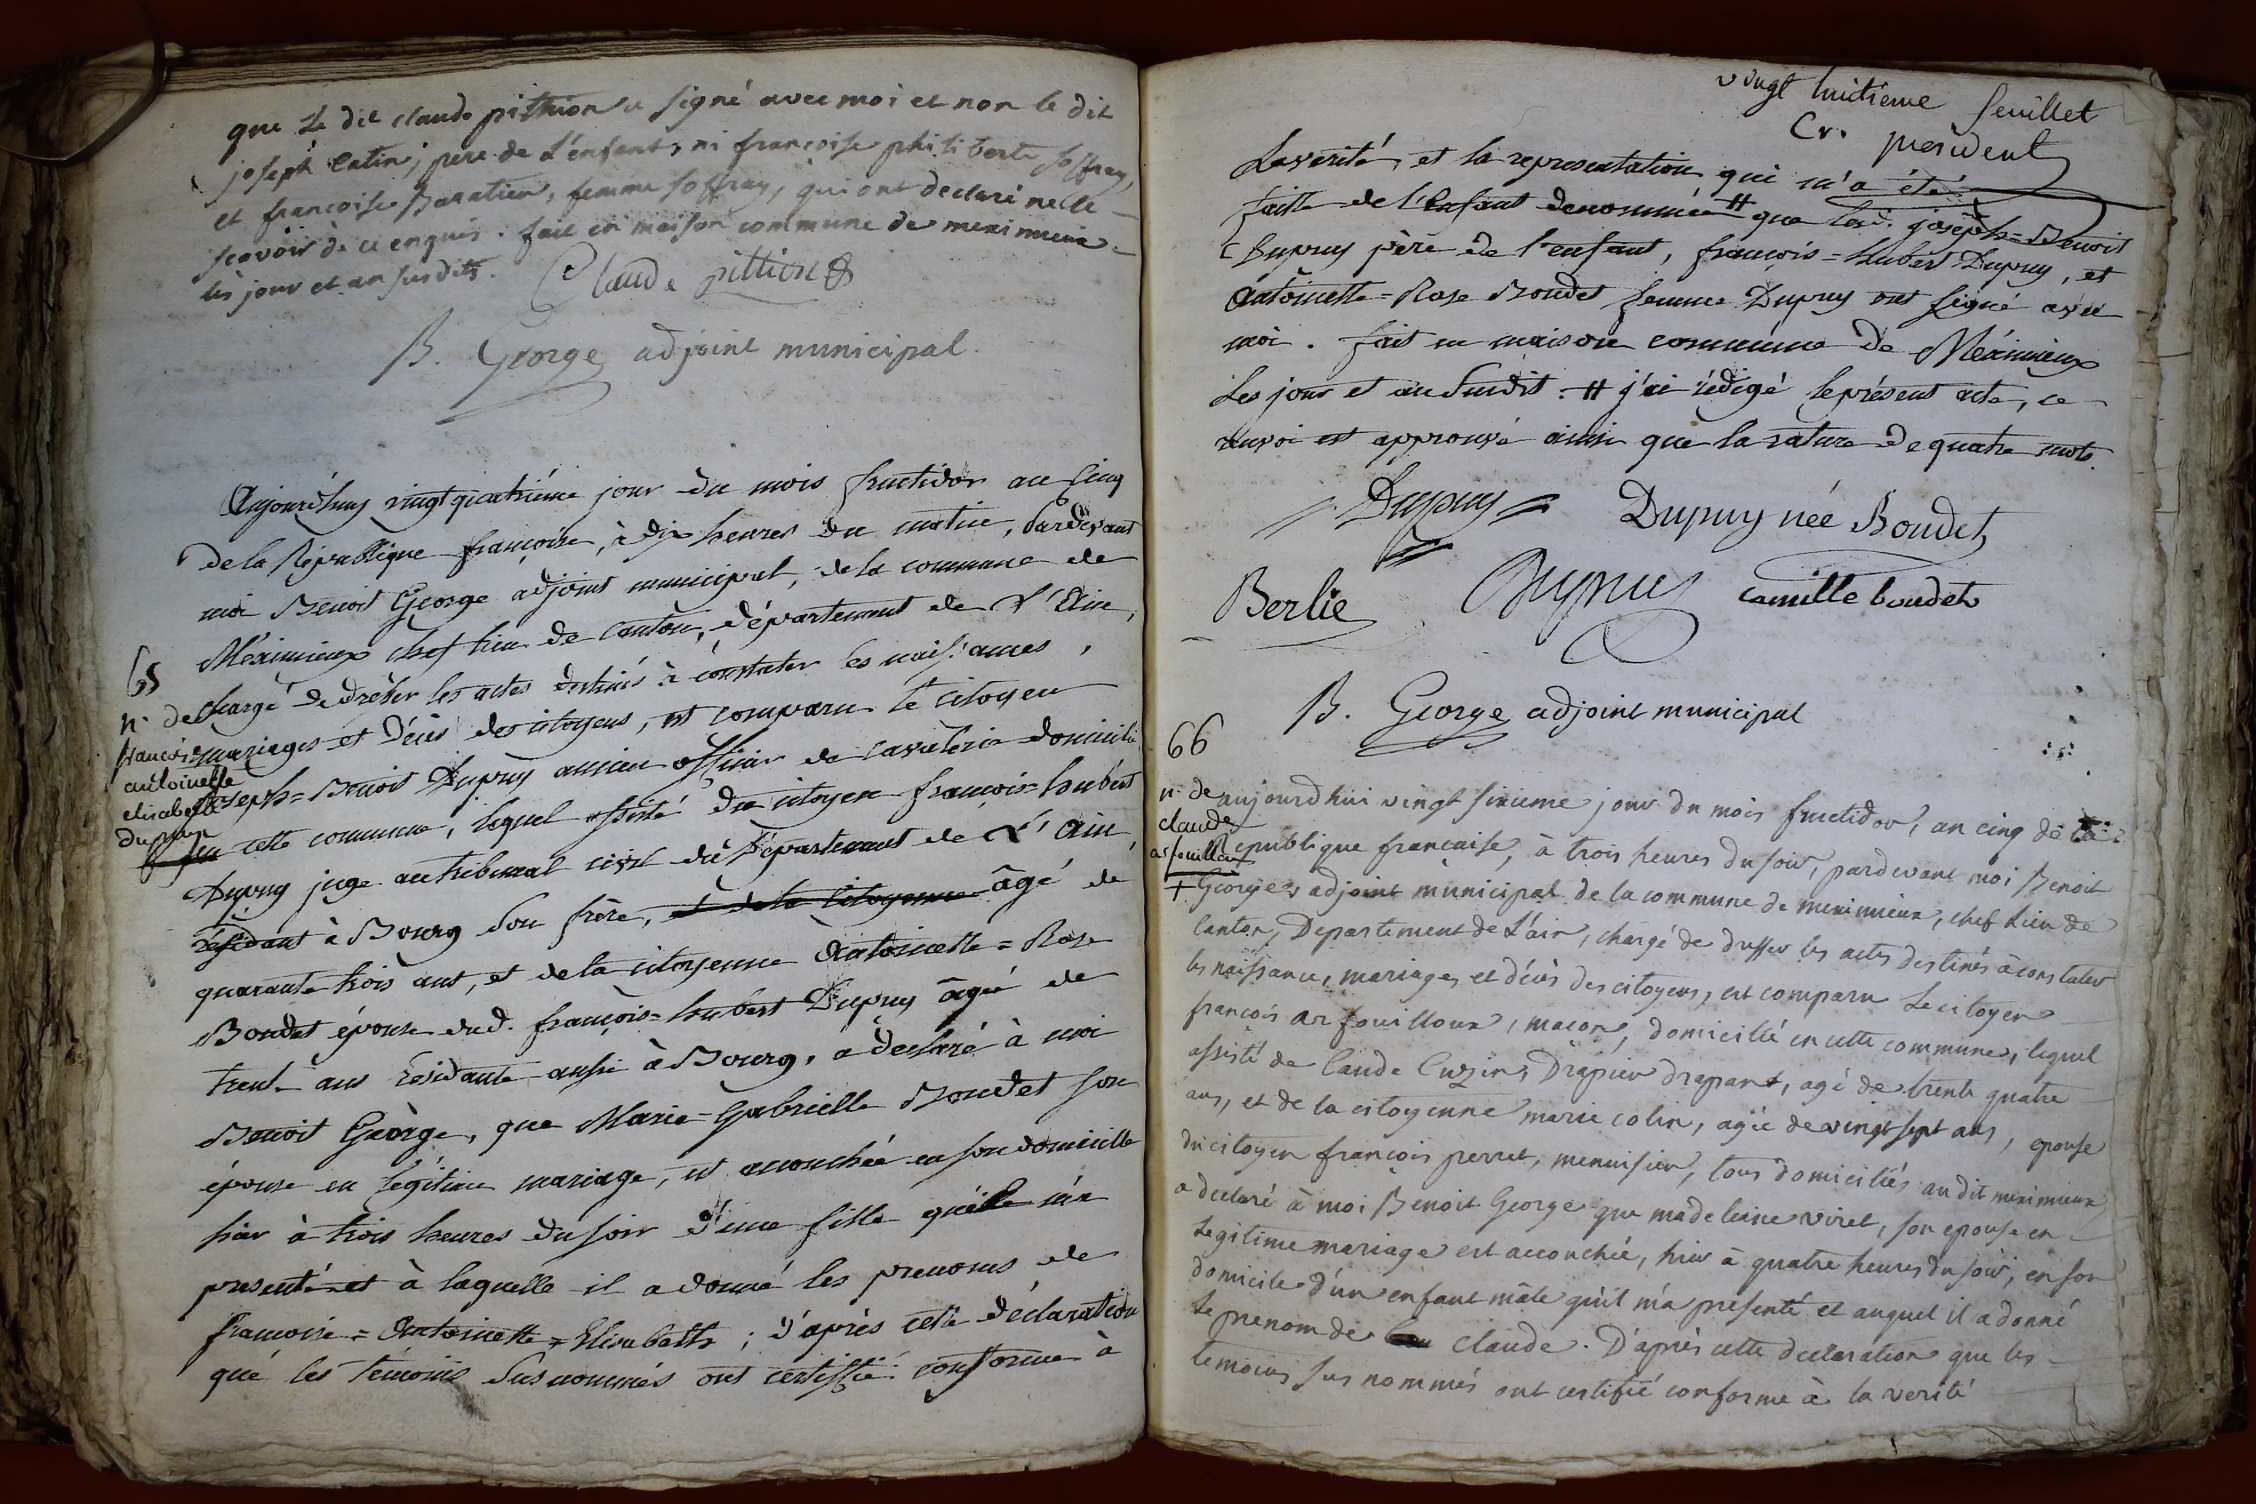 que le dit claude pithion a signé avec moi et non le dit
joseph Catin, pere de L'enfant, ni francoise philiberte Joffray,
et francoise Baratier, femme Joffray, qui ont declaré ne le
scavoir de ce enquis. fait en maison commune de meximieux
les jour et an susdits. Claude pithion
B. George adjoint municipal.
Aujourd'huy vingt quatriéme jour du mois fructidor an Cinq
de la République françoise, à dix heures du matin, Pardevant
moi Benoit George adjoint municipal, de la commune de
Méximieux chef lieu de Canton, département de L'Ain,
65
chargé de dresser les actes destinés à constater les naissances,
n. de
mariages et Décès des citoyens, est comparu le citoyen
francoise
antoinette
elisabeth
dupuy
joseph=Benoit Dupuy ancien officier de cavalerie domicilié
en cette commune, lequel assisté du citoyen françois=hubert
Dupuy juge au tribunal civil du Département de L'Ain,
résidant à Bourg son frère, et de la citoyenne âgé de
quarante trois ans, et de la citoyenne Antoinette=Rose
Boudet épouse dud. françois=hubert Dupuy âgée de
trente ans résidante aussi à Bourg, a déclaré à moi
Benoit George, que Marie=Gabrielle Boudet son
épouse en légitime mariage, est accouchée en son domicille
hier à trois heures du soir d'une fille qu'il m'a
presenté et à laquelle il a donné les prenoms de
francoise=Antoinette=Elisabeth; d'après cette déclaration
que les témoins susnommés ont certiffié conforme à
vingt huitieme feuillet
Cr. président
La verité, et la representation qui m'a été
faitte de l'Enfant denommée # que led. joseph=Benoit
Dupuy père de l'enfant, françois=hubert Dupuy, et
Antoinette=Rose Boudet femme Dupuy ont signé avec
moi. fait en maison commune de Méximieux
Les jour et an susdit. # j'ai rédigé le présent acte, ce
renvoi est approuvé ainsi que la rature de quatre mots.
Dupuy Dupuy née Boudet
Berlie Dupuy camille boudet
B. George adjoint municipal
66
n. de
claude
arfouilloux
aujourd'hui vingt sixieme jour du mois fructidor, an cinq de la
Republique francaise, à trois heures du soir, pardevant moi Benoit
+ George, adjoint municipal de la commune de meximieux, chef Lieu de
Canton, Departement de L'ain, chargé de dresser les actes destinés à constater
les naissance, mariages et décès des citoyens, est comparu Le citoyen
francois arfouilloux, macon, domicilié en cette commune, lequel
assisté de Claude Cuzin, Drapier drapant, agé de trente quatre
ans, et de la citoyenne marie colin, agée de vingt sept ans, epouse
du citoyen francois perret, menuisier, tous domiciliés au dit meximieux,
a declaré à moi Benoit George que madeleine viret, son epouse en
Legitime mariage est accouchée, hier à quatre heures du soir, en son
domicile d'un enfant mâle qu'il m'a presenté et auquel il a donné
Le prenom de claude. D'après cette declaration que les
temoins sus nommés ont certifié conforme à la verité